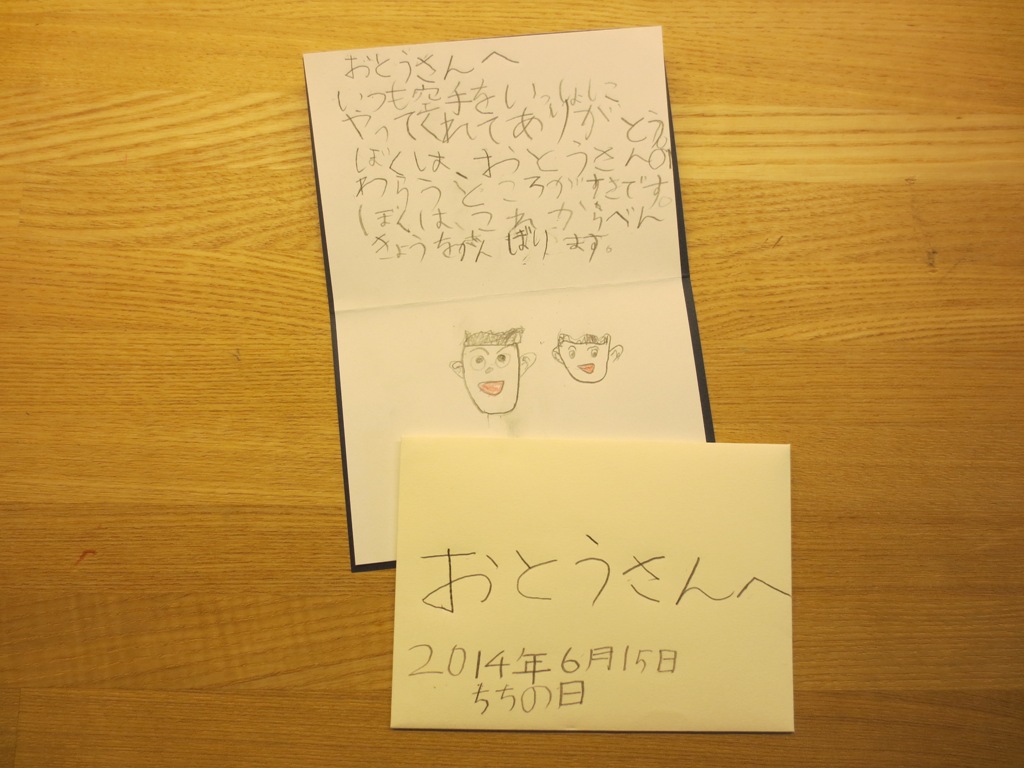 おとうさんへ
いつも空手をいっしょに
やってくれてありがとう。
ぼくは、おとうさんの
わらうところがすきです。
ぼくは、これからべん
きょうをがんばります。
おとうさんへ
2014年6月15日
ちちの日